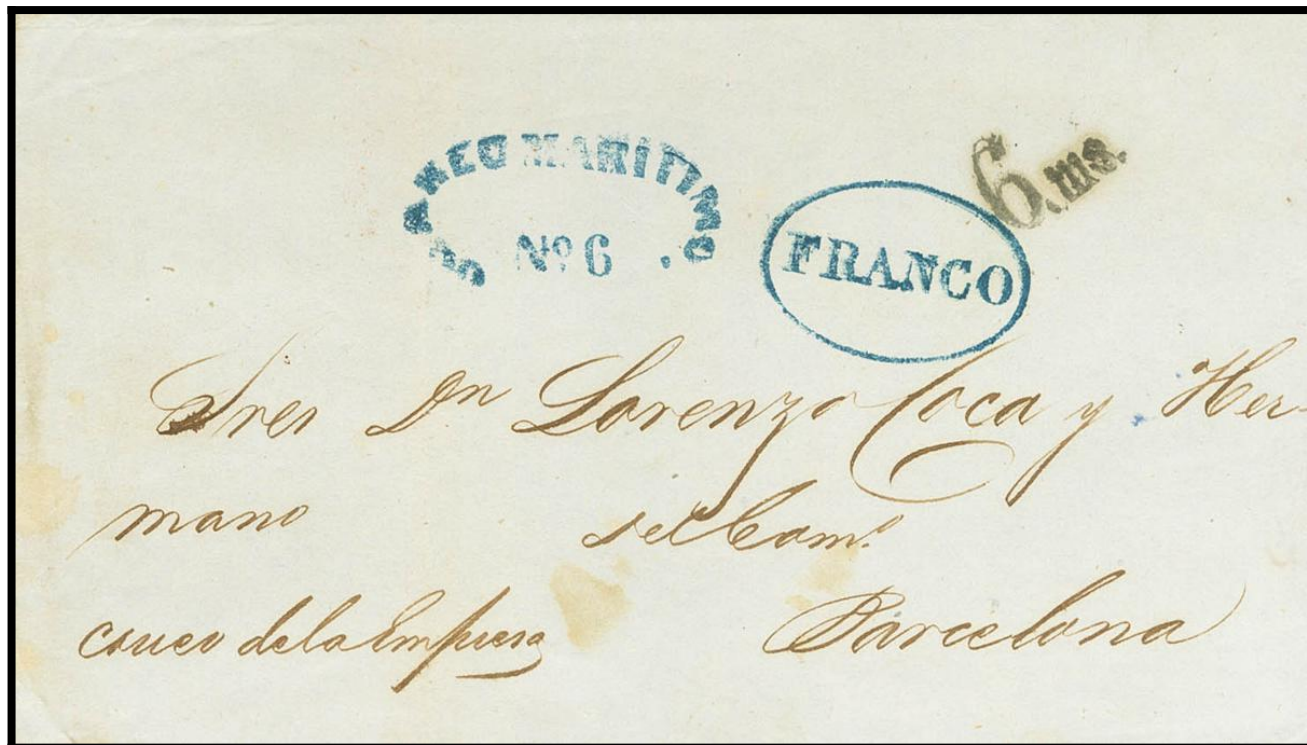 CORREO MARITIMO.
Nº 6
FRANCO
6.ms.
Sres Dn Lorenzo Coca y Her-
mano
del Com.º
correo de la Empresa
Barcelona